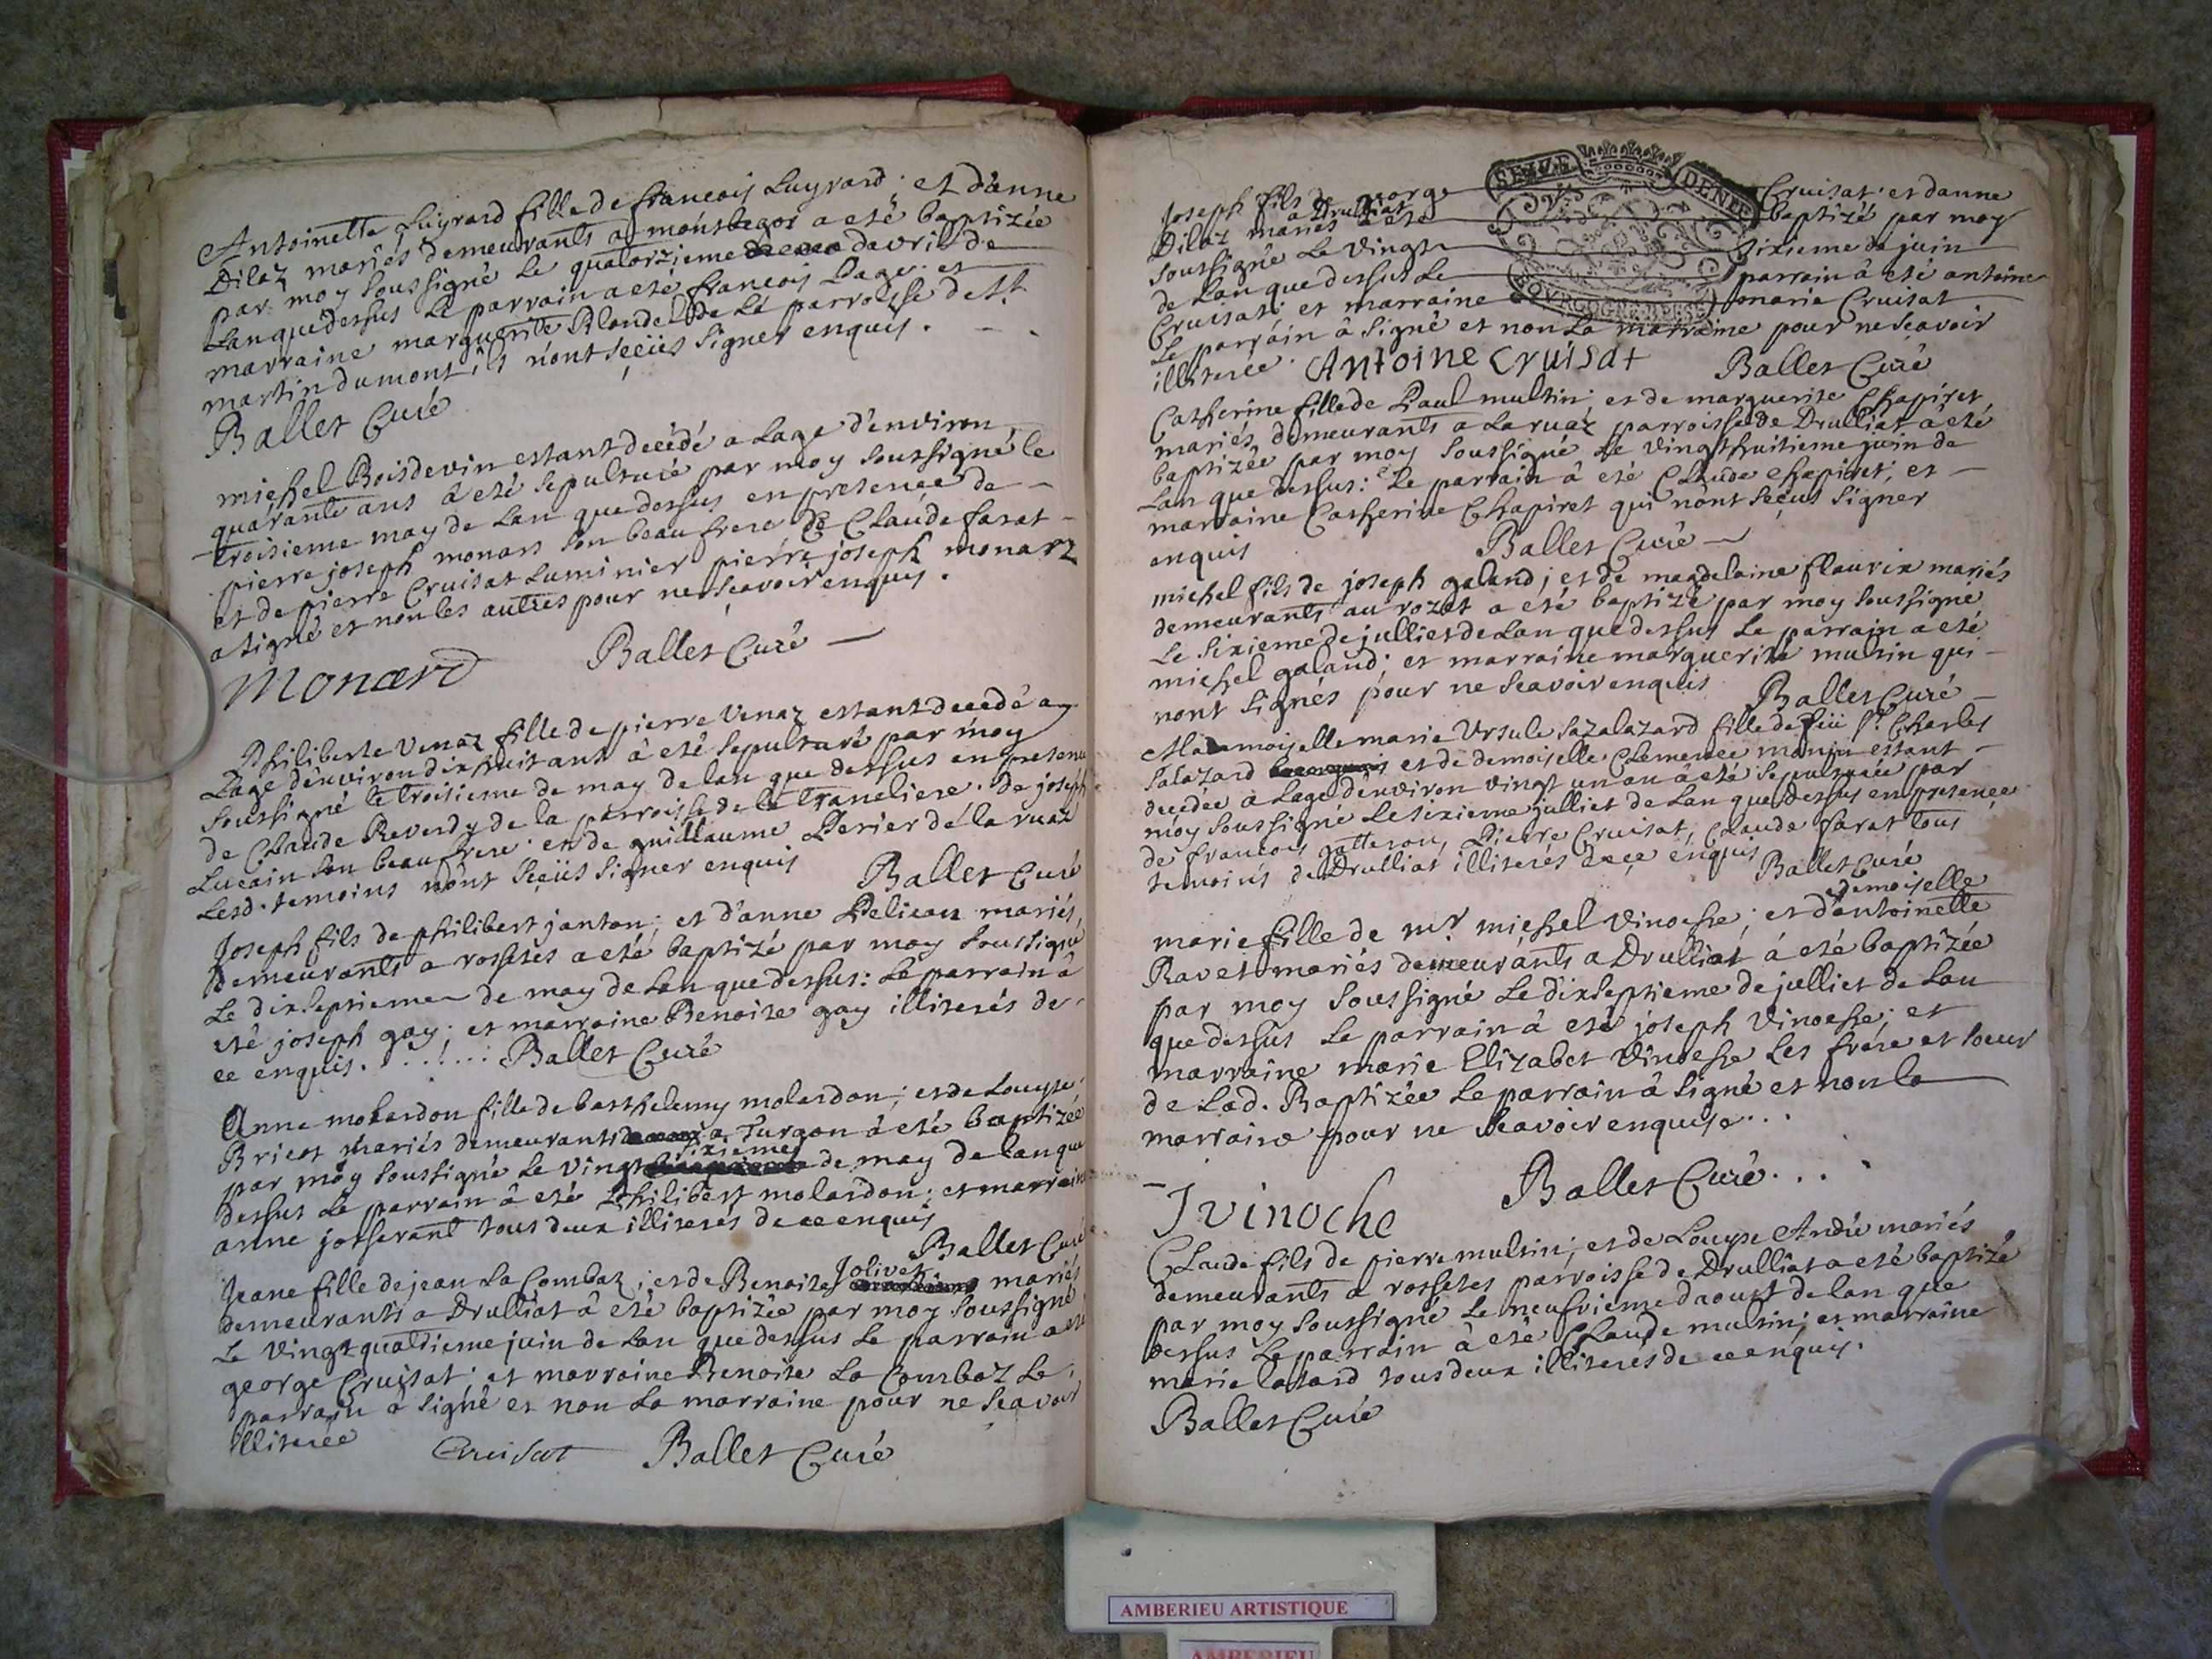 Antoinette Luyrard fille de francois Luyrard; et d'anne
Dilaz mariés demeurants a montbegos a eté baptizée
par moy soussigné le quatorzieme davril de
Lan que dessus Le parrain a eté francois Page et
marraine marguerite Blondel de Lé parroisse de St
martin dumont ils n'ont sceus signer enquis.
Ballet Curé
michel Boisdevin estant decédé a Lage d'environ
quarante ans â eté sepulturé par moy soussigné le
troisieme may de Lan que dessus en presence de
pierre joseph monars son beaufrere de Claude farat
et de pierre Cruisat Luminier pierre joseph monarz
a signé et non les autres pour ne scavoir enquis.
Monard
Ballet Curé
Philiberte Venaz fille de pierre Venaz estant decedé a
Lage d'environ dixhuit ans â eté sepulturé par moy
soussigné le troisieme de may de lan que dessus en presence
de Claude Reverdy de la parroisse de la Trancliere. De joseph
Lucain son beaufrere et de guillaume Perier de la ruaz
Lesd. temoins n'ont sceus signer enquis
Ballet Curé
Joseph fils de philibert janton; et d'anne Pelican mariés
demeurants a rossetes a eté baptizé par moy soussigné
Le dixseptieme de may de Lan que dessus: Le parrain â
eté joseph gay; et marraine Benoite gay illiterés de
ce enquis. Ballet Curé
Anne molardon fille de barthelemy molardon; et de Louyse
Brict mariés demeurants a Turgon â eté baptizée
par moy soussigné Le Vingt sixieme de may de lan que
dessus Le parrain â eté Philibert molardon; et marraine
anne josserant tous deux illiterés de ce enquis
Ballet Curé
Jeane fille de jean La Combaz; et de Benoite Jolivet mariés
demeurants a Drulliat â eté baptizée par moy soussigné
Le Vingt quattrieme juin de Lan que dessus Le parrain a eté
george Cruisat; et marraine Benoite La Combaz Le
parrain a signé et non La marraine pour ne scavoir
illiterée
Cruisat Ballet Curé
Joseph fils de george Cruisat et danne
Dilaz mariés a Drulliat â eté baptizé par moy
soussigné Le Vingt sixieme de juin
de Lan que dessus Le parrain â eté antoine
Cruisat; et marraine marie Cruisat
Le parrain â signé et non La marraine pour ne scavoir
illiterée. Antoine Cruisat Ballet Curé
SEIZE DENIE
BOVRGOGNE BRESSE
Catherine fille de Paul multin et de marguerite Chapiret
mariés, demeurants a La ruaz parroisse de Drulliat â eté
baptizée par moy soussigné Le Vingt huitieme juin de
Lan que dessus: Le parrain â eté Claude Chapiret; et
marraine Catherine Chapiret qui n'ont sceus signer
enquis
Ballet Curé
michel fils de joseph galand; et de magdelaine flaurin mariés
demeurants au rozet a eté baptizé par moy soussigné
Le sixieme de julliet de Lan que dessus Le parrain a eté
michel galand; et marraine marguerite mutin qui
nont signés pour ne scavoir enquis Ballet Curé
Mademoiselle marie Ursule Sazalazard fille de feu Sr Charles
Salazard et de demoiselle Clemence monin estant
decedée a Lage d'environ vingt un an â eté sepulturée par
moy soussigné Le sixieme julliet de Lan que dessus en presence
de francois galleron, Pierre Cruisat, Claude farat tous
temoins de Drulliat illiterés de ce enquis Ballet Curé
marie fille de mr michel Vinoche; et demoiselle d'antoinette
Ravet mariés demeurants a Drulliat â eté baptizée
par moy soussigné Le dixseptieme de julliet de Lan
que dessus Le parrain â eté joseph Vinoche; et
marraine marie Elizabet Vinoche Les frere et soeur
de Lad. Baptizée Le parrain â signé et non la
marraine pour ne scavoir enquise...
J vinoche
Ballet Curé...
Claude fils de pierre multin; et de Louyse André mariés
demeurants a rossetes parroisse de Drulliat a eté baptizé
par moy soussigné Le neufvieme daoust de lan que
dessus Le parrain â eté Claude multin; et marraine
marie latard tous deux illiterés de ce enquis.
Ballet Curé
AMBERIEU ARTISTIQUE
AMBERIEU